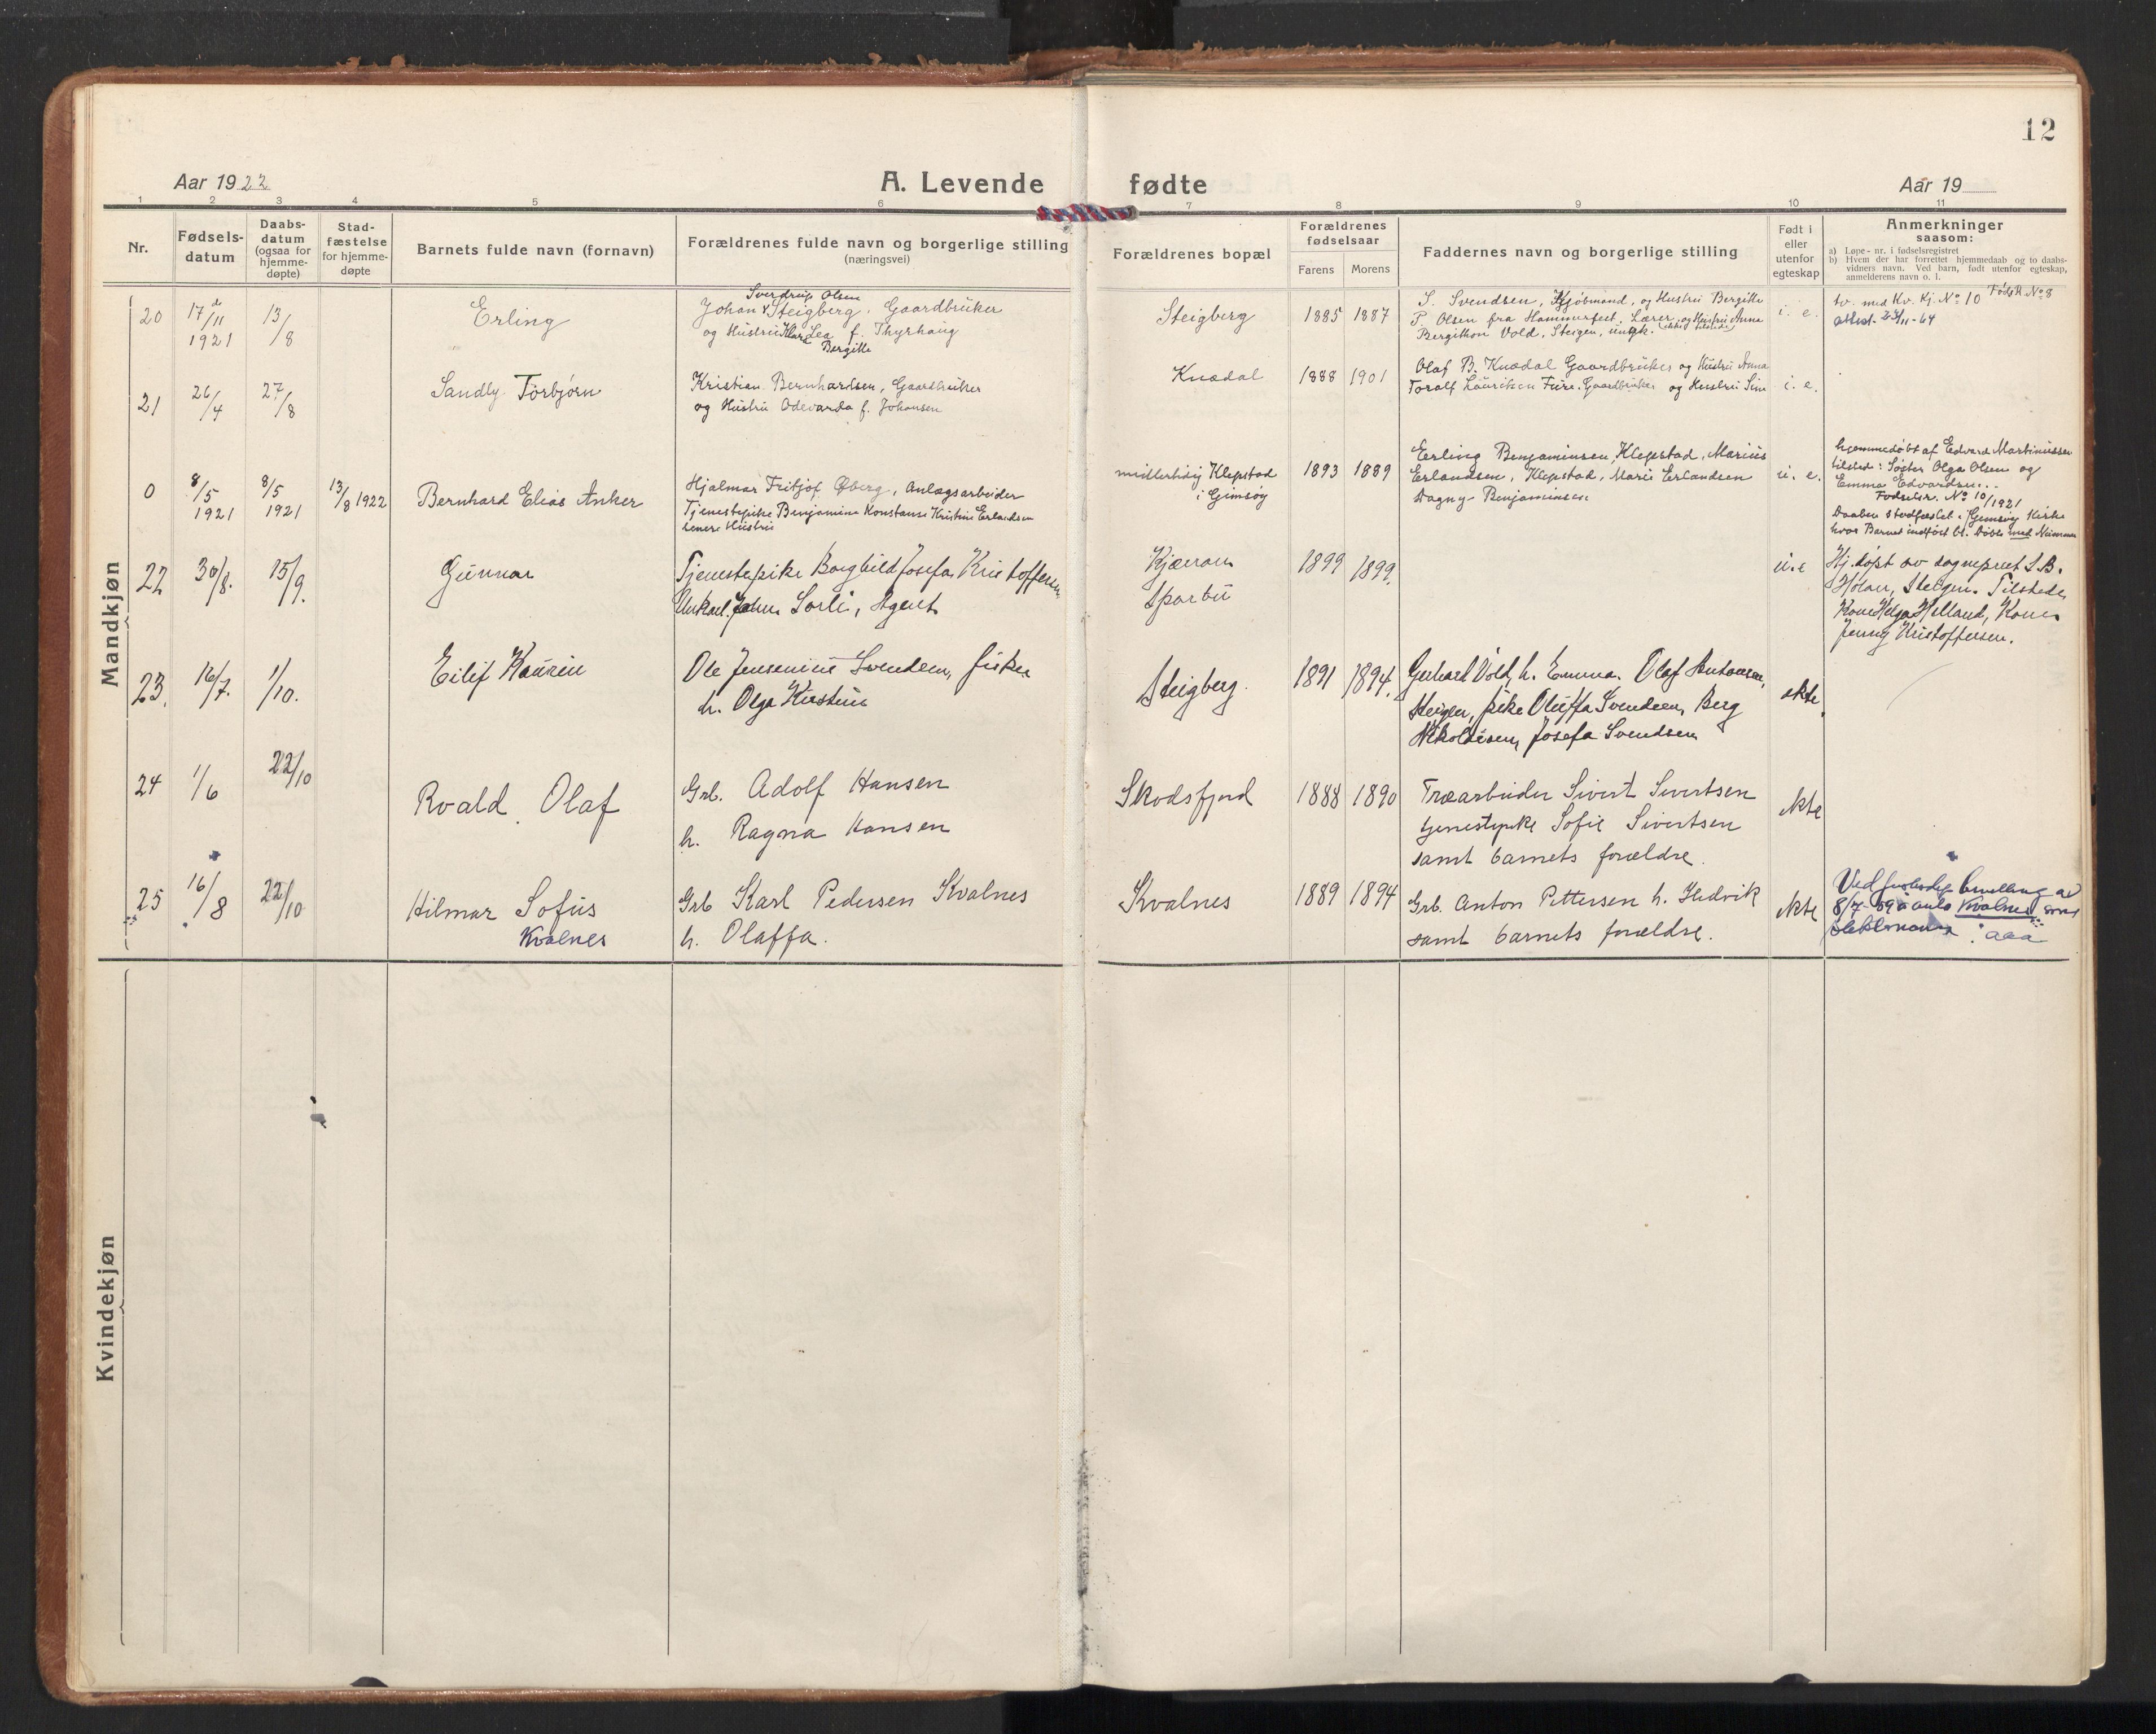 12
Aar 1922
A. Levende
fødte
Aar 19
1 2 3 4 5 6 7 8 9 10 11
Nr.
Fødsels-
datum
Daabs-
datum
(ogsaa for
hjemme-
døpte)
Stad-
fæstelse
for hjemme-
døpte
Barnets fulde navn (fornavn)
Forældrenes fulde navn og borgerlige stilling
(næringsvei)
Forældrenes bopæl
Forældrenes
fødselsaar
Farens
Morens
Faddernes navn og borgerlige stilling
Født i
eller
utenfor
egteskap
Anmerkninger
saasom:
a) Løpe-nr. i fødselsregistret
b) Hvem der har forrettet hjemmedaab og to daabs-
vidners navn. Ved barn, født utenfor egteskap,
anmelderens navn o. l.
Mandkjøn
20
17/11
1921
13/8
Erling
Sverdrup Olsen
Johan Steigberg, Gaardbruker
og Hustru Lea f. Thyrhaug
Bergitte
Steigberg
1885 1887
S. Svendsen, Kjøbmand, og Hustru Bergitte
P. Olsen fra Hammerfest, Lærer, og Hustru Anna
Bergithon Vold, Steigen, ungk.
i. e.
tv. med Kv. Kj. No 10 Føds R. No 8
Attest 23/11-64
21
26/4
27/8
Sandly Torbjørn
Kristian Bernhardsen, Gaardbruker
og Hustru Odevarda f. Johansen
Knædal
1888 1901
Olaf B. Knædal Gaardbruker og Hustru Anna
Toralf Lauritsen Fure, Gaardbruker og Hustru Sina
i. e.
0
8/5
1921
8/5
1921
13/8 1922
Bernhard Elias Anker
Hjalmar Fritjof Øberg, Anlagsarbeider
Tjenestepike Benjamine Konstanse Kristine Erlandsen
senere Hustru
midlertidig Klepstad
i Gimsøy
1893 1889
Erling Benjaminsen, Klepstad, Marius
Erlandsen, Klepstad, Marie Erlandsen
Dagny Benjaminsen
u. e.
hjemmedøbt af Edvard Martinussen
tilsted: Søster Olga Olsen og
Emma Edvardsen.
Fødselsr. No 10/1921
Daaben stadfæstet i Gimsøy Kirke
hvor Barnet indført bl. Døbte med Nummer
22
30/8.
15/9.
Gunnar
Tjenestepike Borghild Josefa Kristoffersen,
Ungkarl John Sorli, Agent
Kjærran
Sparbu
1899 1899.
u. e
Hj. døpt av sogneprest S. B.
Holan, Steigen. Tilstede,
Kone Helga Helland, Kone
Jenny Kristoffersen.
23.
16/7.
1/10.
Eilif Kaurin
Ole Jensenius Svendsen, fisker
h. Olga Kirstine
Steigberg.
1891 1894.
Gerhart Vold, h. Emma. Olaf Antonsen,
Steigen, pike Oluffa Svendsen, Berg
Nikolaisen, Josefa Svendsen
ekte.
24
1/6
22/10
Roald Olaf
Grb. Adolf Hansen
h. Ragna Hansen
Skodsfjord
1888 1890
Træarbeider Sivert Sivertsen
tjenestepike Sofie Sivertsen
samt barnets forældre.
ekte
25
16/8
22/10
Hilmar Sofus
Kvalnes
Grb Karl Pedersen Kvalnes
h. Olaffa.
Kvalnes
1889 1894
Grb. Anton Pettersen h. Hedvik
samt barnets forældre.
ekte
Ved fylkesdep bevilling av
8/7-59 å anta Kvalnes som
slektsnavn. aaa
Kvindekjøn